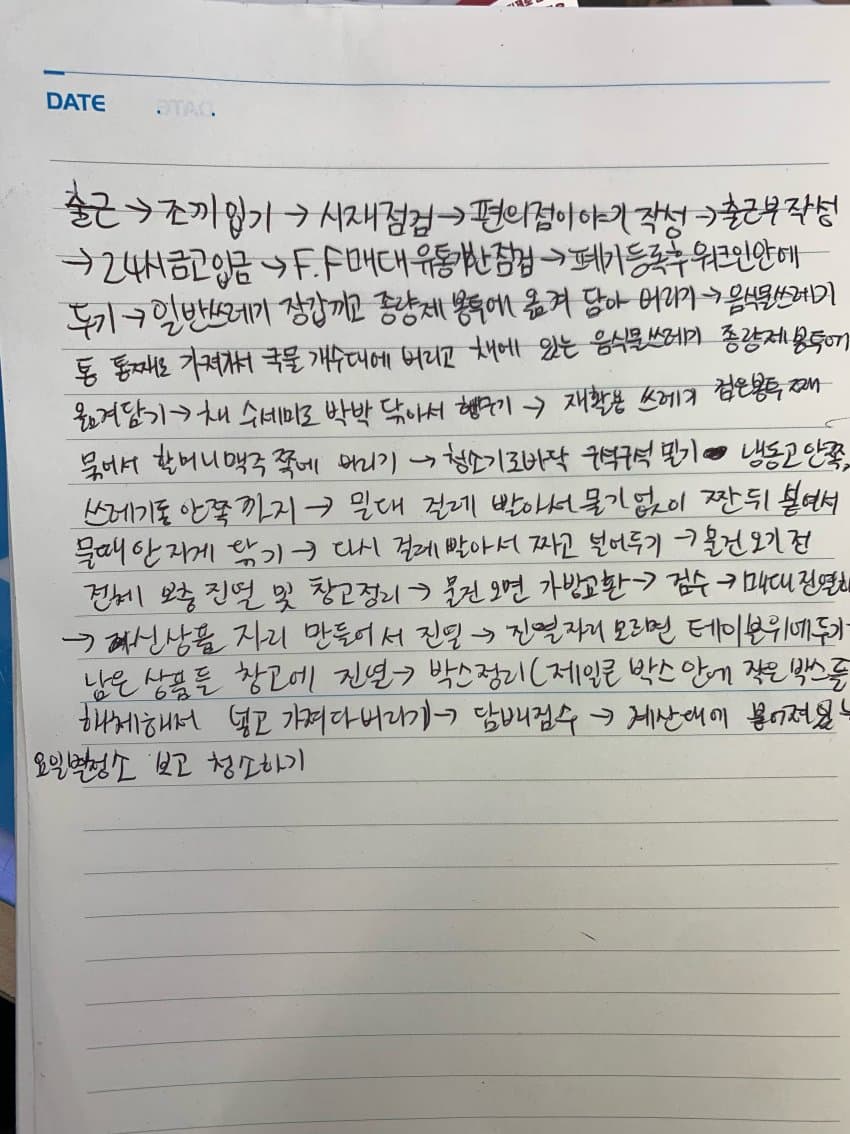 DATE . .
출근 → 조끼입기 → 시재점검 → 편의점이야기 작성 → 출근부작성
→ 24시금고입금 → F.F매대 유통기한점검 → 폐기등록후 워크인안에
두기 → 일반쓰레기 장갑끼고 종량제 봉투에 옮겨 담아 버리기 → 음식물쓰레기
통 통째로 가져가서 국물 개수대에 버리고 채에 있는 음식물쓰레기 종량제봉투에
옮겨담기 → 채 수세미로 박박 닦아서 헹구기 → 재활용 쓰레기 검은봉투 째
묶어서 할머니맥주 쪽에 버리기 → 청소기로바닥 구석구석 밀기 냉동고안쪽,
쓰레기통 안쪽까지 → 밀대 걸레 빨아서 물기없이 짠뒤 붙여서
물때 안지게 닦기 → 다시 걸레빨아서 짜고 널어두기 → 물건오기전
전체 보충 진열 및 창고정리 → 물건 오면 가방교환 → 검수 → 매대 진열
→ 신상품 자리 만들어서 진열 → 진열자리 모르면 테이블위에두기
남은 상품들 창고에 진열 → 박스정리(제일큰 박스안에 작은 박스들
해체해서 넣고 가져다버리기) → 담배검수 → 계산대에 붙어져있
요일별청소 보고 청소하기